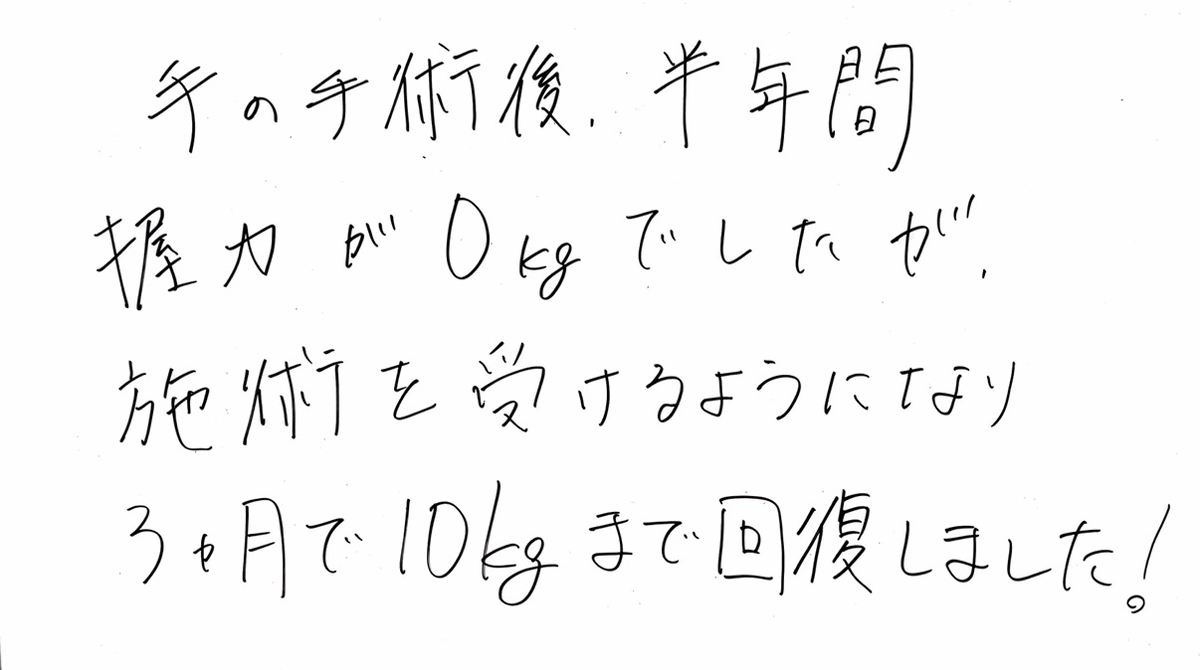 手の手術後、半年間
握力が0kgでしたが、
施術を受けるようになり
3ヶ月で10kgまで回復しました!